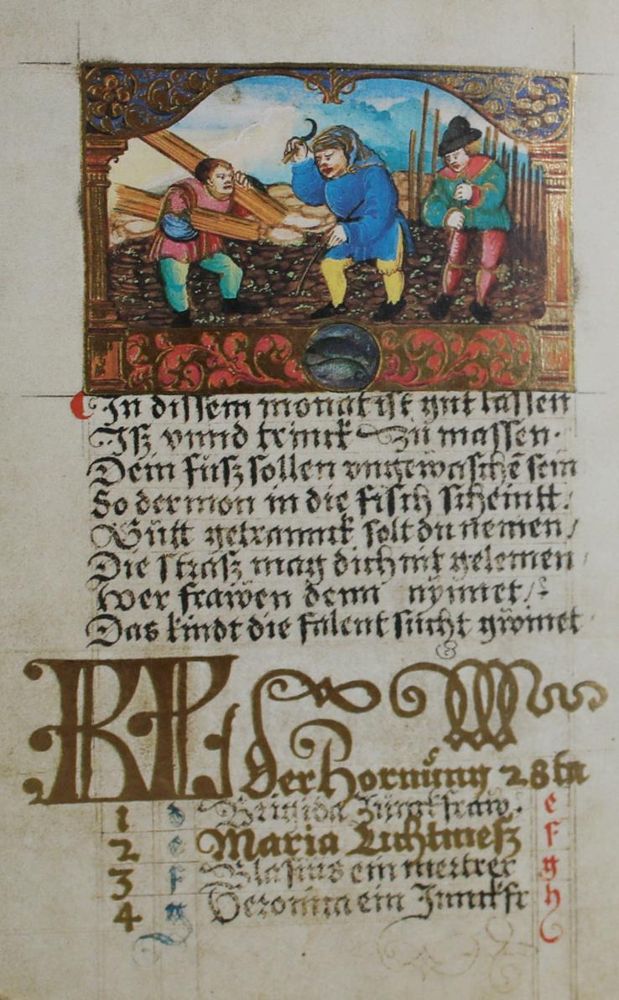 In dissem monat ist gut lassen
Isz vnnd trinck zu massen.
Dein füsz sollen vngewaschē sein
So der mon in die fisch scheintt.
Gütt getrannck solt du nemen/
Die strasz mag dich nit gelemen
Wer frawen denn nymet/
Das kindt die falent sücht gwmet
KL der Hornüng 28 ta
1 d Brigida Jungkfraw. e
2 e Maria Lichtmesz f
3 f Blasius ein mertrer g
4 g ein Junckfr h